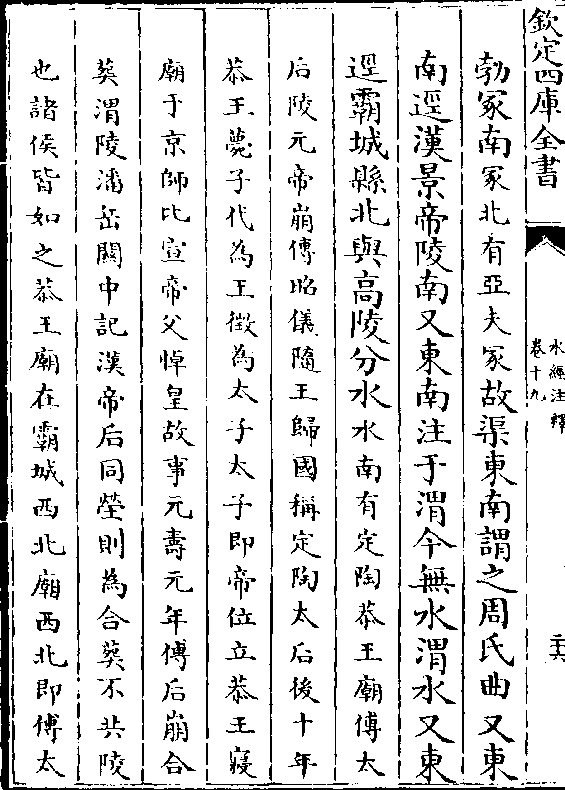 欽定四庫全書
水經注釋
卷十九
二十六
勃冢南冢北有亞夫冢故渠東南謂之周氏曲又東
南逕漢景帝陵南又東南注于渭今無水渭水又東
逕霸城縣北與高陵分水水南有定陶恭王廟傅太
后陵元帝崩傅昭儀隨王歸國稱定陶太后後十年
恭王薨子代為王徵為太子太子即帝位立恭王寢
廟于京師比宣帝父悼皇故事元壽元年傅后崩合
葬渭陵潘岳關中記漢帝后同塋則為合葬不共陵
也諸侯皆如之恭王廟在霸城西北廟西北即傅太